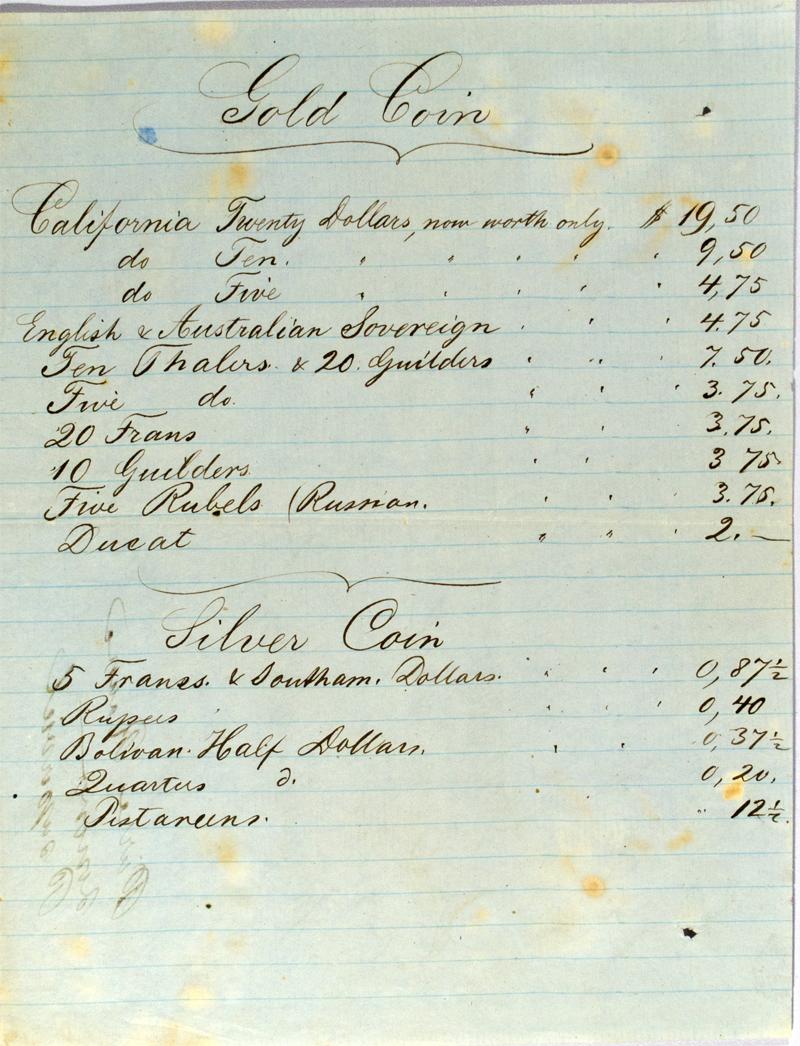 Gold Coin
California Twenty Dollars, now worth only. $ 19,50
do Ten. " " " " " 9,50
do Five " " " " " 4,75
English & Australian Sovereign " " " 4.75
Ten Thalers. & 20. Guilders " " " 7.50.
Five do. " " " 3.75.
20 Frans " " 3.75.
10 Guilders " " 3 75.
Five Rubels (Russian. " " 3.75.
Ducat " " " 2.—
Silver Coin
5 Francs. & Southam. Dollars. " " " 0,87½
Rupees " " " 0,40
Bolivan Half Dollars. " " 0,37½
Quarters d. 0,20.
Pistareens. " 12½.